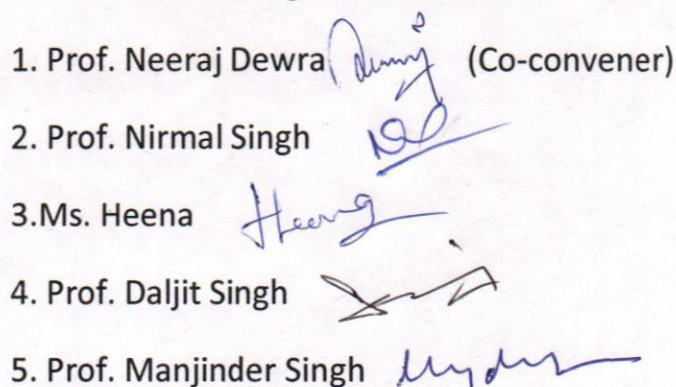 1. Prof. Neeraj Dewra (Co-convener)
2. Prof. Nirmal Singh
3.Ms. Heena Heena
4. Prof. Daljit Singh
5. Prof. Manjinder Singh